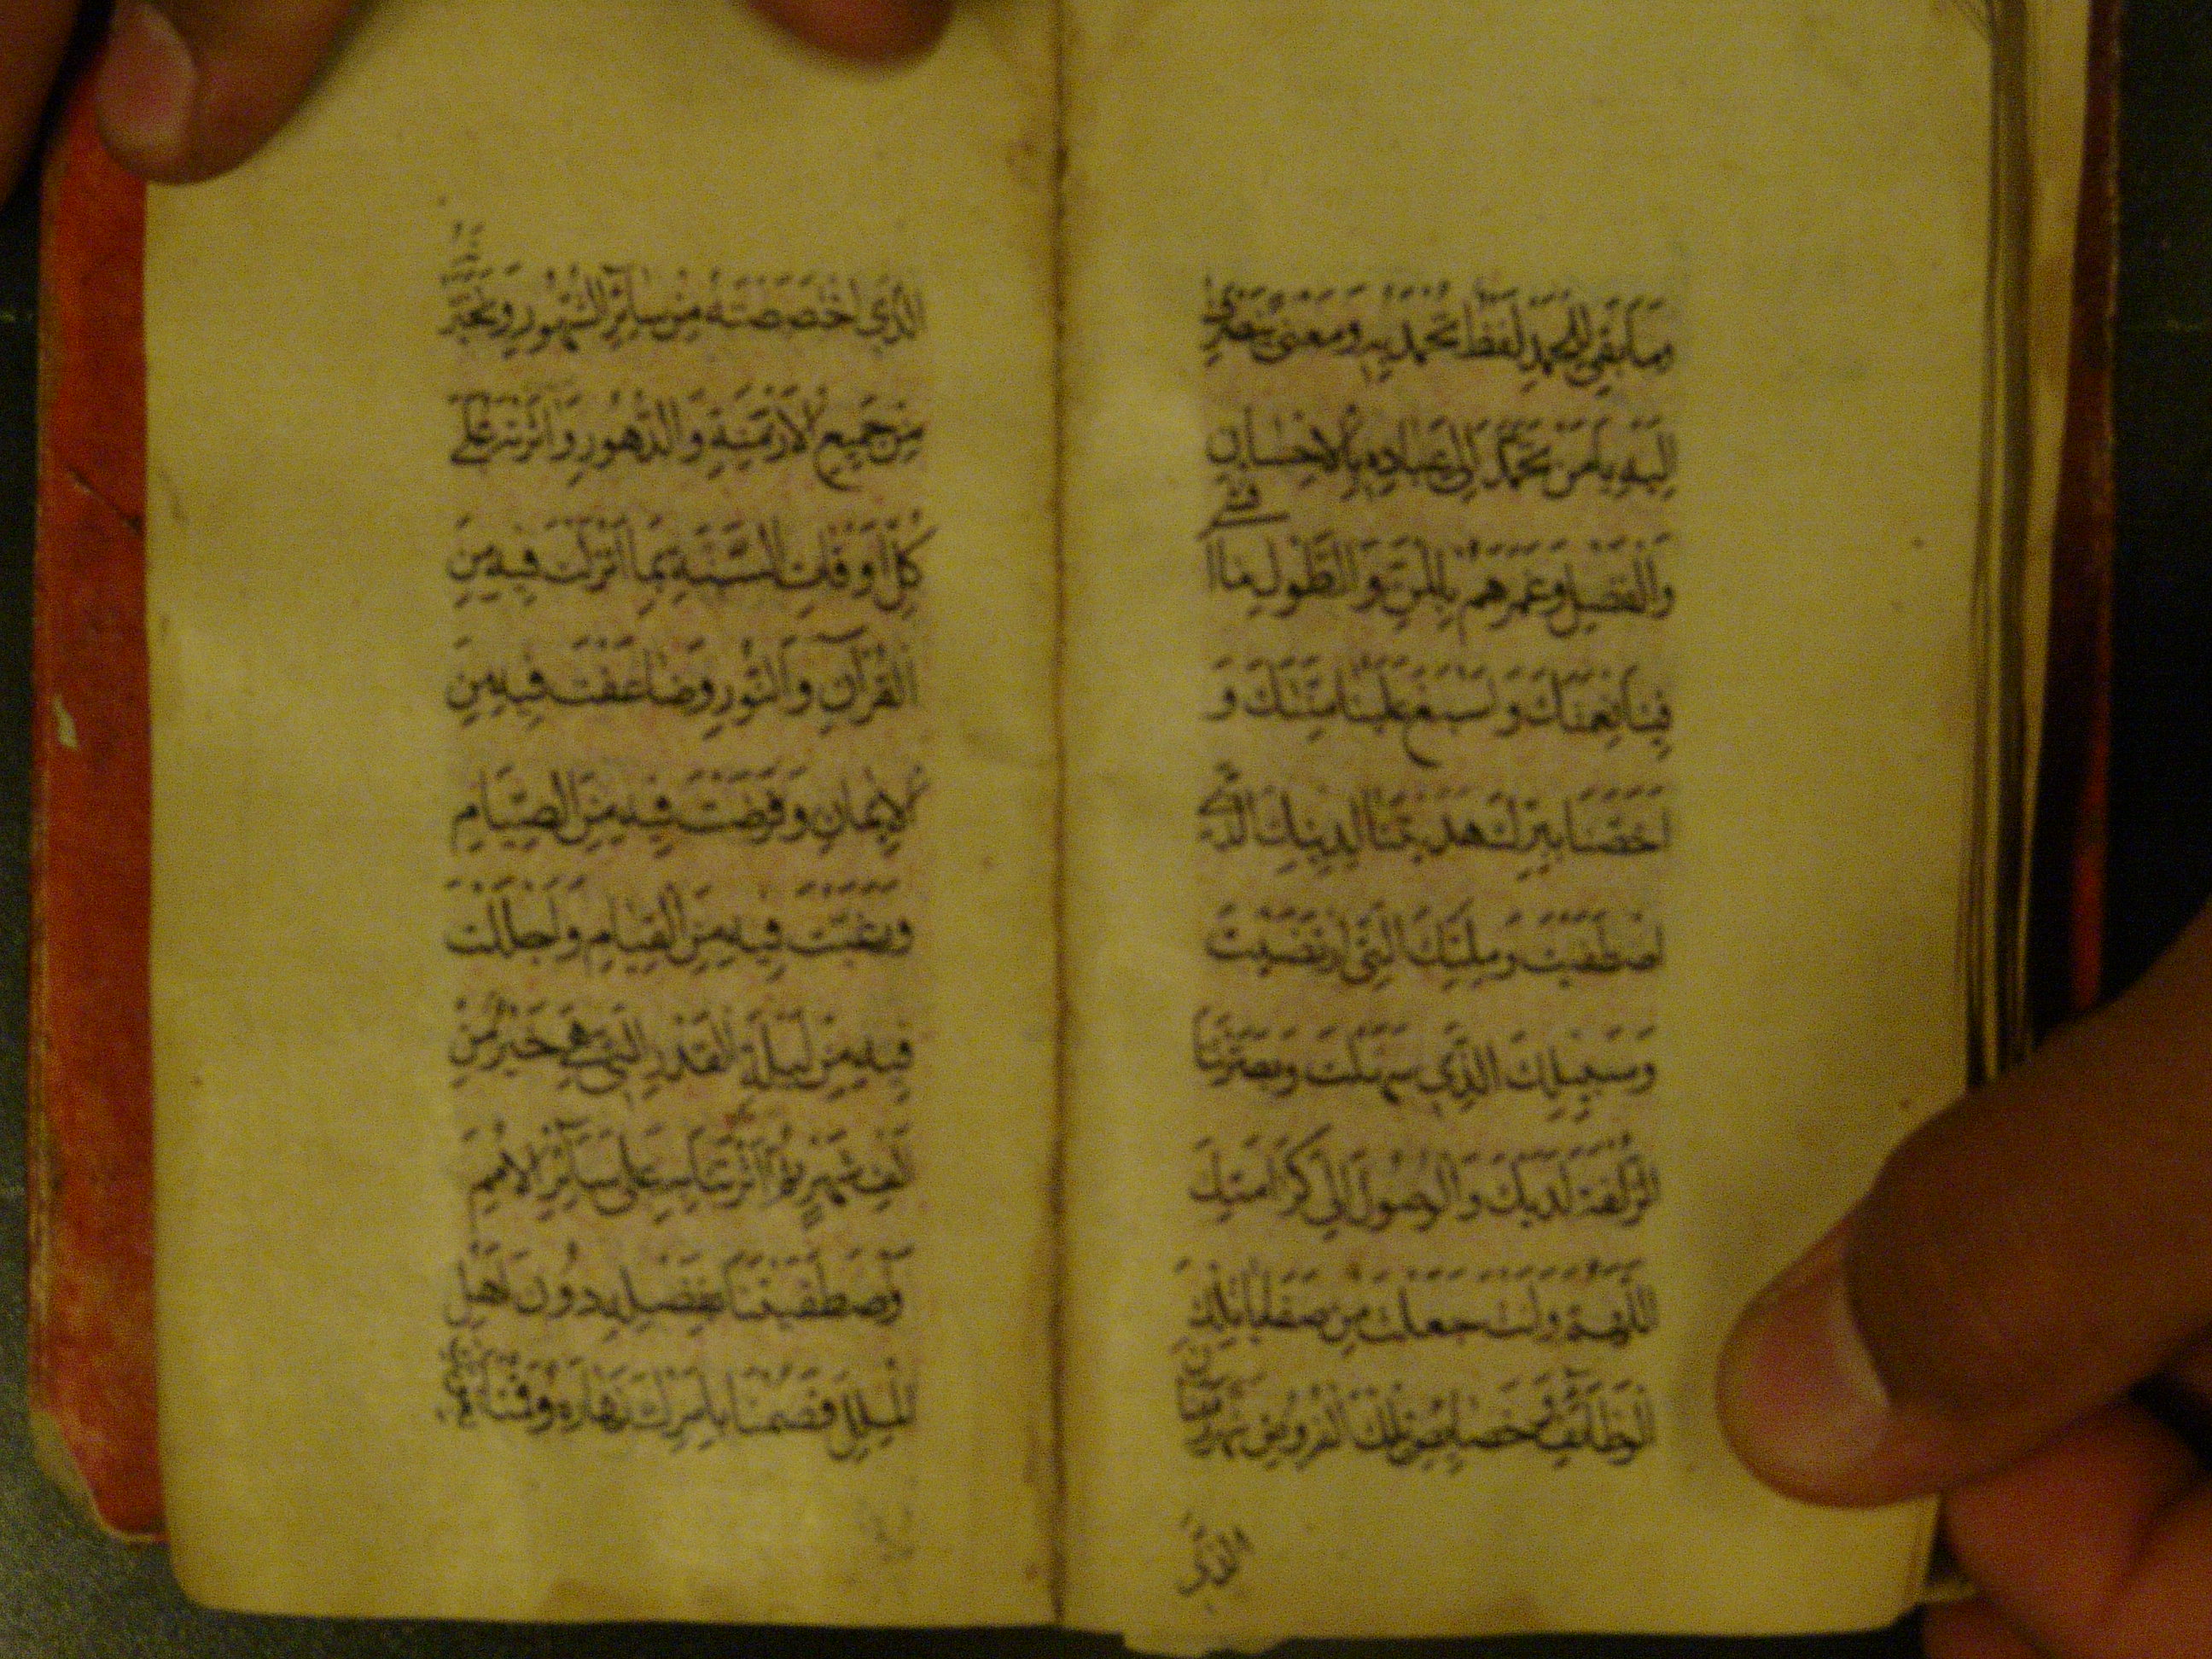 وَمَا بَقِيَ لِلْحَمْدِ لَفْظٌ تُحْمَدُ بِهِ وَمَعْنًى يَنْصَرِفُ
اِلَيْهِ يَا مَنْ تَحَمَّدَ اِلَى عِبَادِهِ بِالْاِحْسَانِ
وَالْفَضْلِ وَغَمَرَهُمْ بِالْمَنِّ وَالطَّوْلِ مَا اَفْشَى
فِينَا نِعْمَتَكَ وَاَسْبَغَ عَلَيْنَا مِنَّتَكَ وَ
اَخَصَّنَا بِبِرِّكَ هَدَيْتَنَا لِدِينِكَ الَّذِي
اصْطَفَيْتَ وَمِلَّتِكَ الَّتِي ارْتَضَيْتَ
وَسَبِيلِكَ الَّذِي سَهَّلْتَ وَبَصَّرْتَنَا
الزُّلْفَةَ لَدَيْكَ وَالْوُصُولَ اِلَى كَرَامَتِكَ
اَللّٰهُمَّ وَاَنْتَ جَعَلْتَ مِنْ صَفَايَا تِلْكَ
الْوَظَائِفِ وَخَصَائِصِ تِلْكَ الْفُرُوضِ شَهْرَ رَمَضَانَ
الَّذِي
الَّذِي اخْتَصَصْتَهُ مِنْ سَائِرِ الشُّهُورِ وَتَخَيَّرْتَهُ
مِنْ جَمِيعِ الْاَزْمِنَةِ وَالدُّهُورِ وَآثَرْتَهُ عَلَى
كُلِّ اَوْقَاتِ السَّنَةِ بِمَا اَنْزَلْتَ فِيهِ مِنَ
الْقُرْآنِ وَالنُّورِ وَضَاعَفْتَ فِيهِ مِنَ
الْاِيمَانِ وَفَرَضْتَ فِيهِ مِنَ الصِّيَامِ
وَرَغَّبْتَ فِيهِ مِنَ الْقِيَامِ وَاَجْلَلْتَ
فِيهِ مِنْ لَيْلَةِ الْقَدْرِ الَّتِي هِيَ خَيْرٌ مِنْ
اَلْفِ شَهْرٍ ثُمَّ آثَرْتَنَا بِهِ عَلَى سَائِرِ الْاُمَمِ
وَاصْطَفَيْتَنَا بِفَضْلِهِ دُونَ اَهْلِ
الْمِلَلِ فَصُمْنَا بِاَمْرِكَ نَهَارَهُ وَقُمْنَا